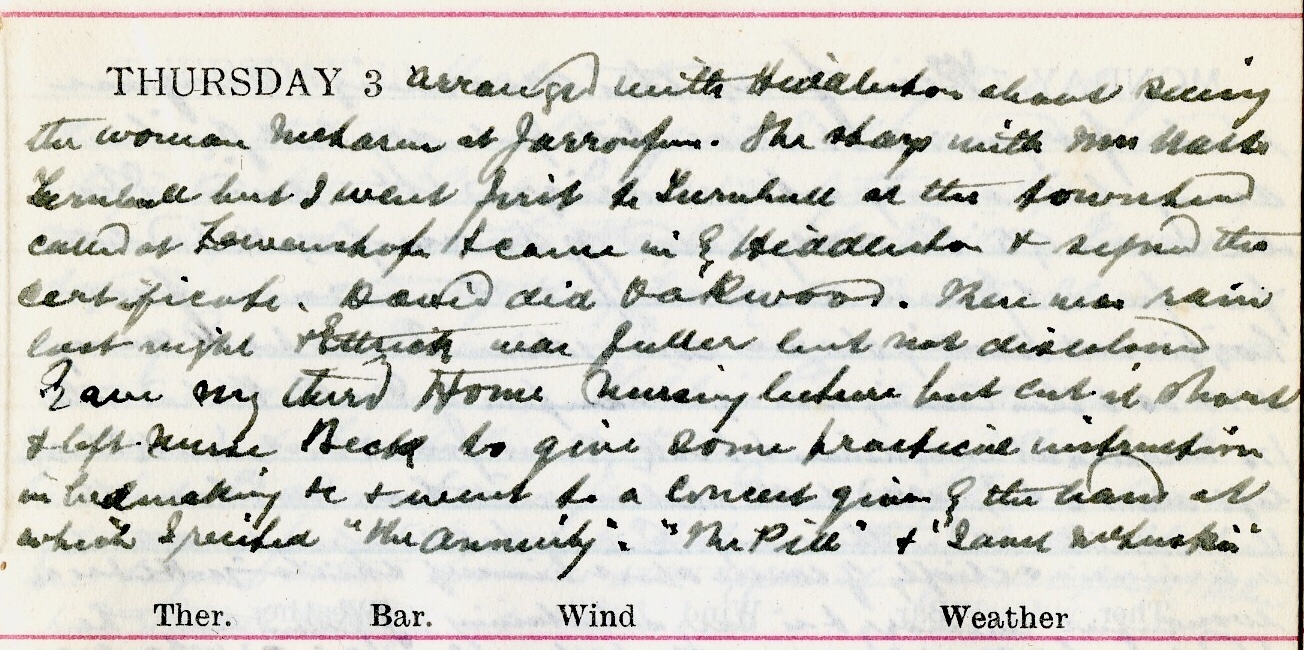 THURSDAY 3 Arranged with Hiddleston about seeing
the woman at . She stays with Mrs
Turnbull but I went first to Turnhull at the townhead
called at Fowenshope & came in by Hiddleston & signed the
certificate. David did Oakwood. There was rain
last night & Ettrick was fuller but not discoloured
Gave my third Home Nursing lecture but cut it short
& left Nurse Beck to give some practical instruction
in bedmaking &c & went to a concert given by the band at
which I recited "The Annuity". "The Pill" & "Janet McLuskie"
Ther. Bar. Wind Weather